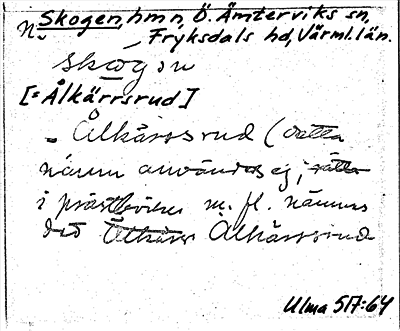 N. Skogen, hmn, Ö. Ämterviks sn,
Fryksdals hd, Värml. län.
skogən
[= Ålkärrsrud]
= Ålkärrsrud (detta
namn användes ej; rätta
i prästböcker m. fl. nämnes
det Ålkärr Ålkärrsrud
Ulma 517:64